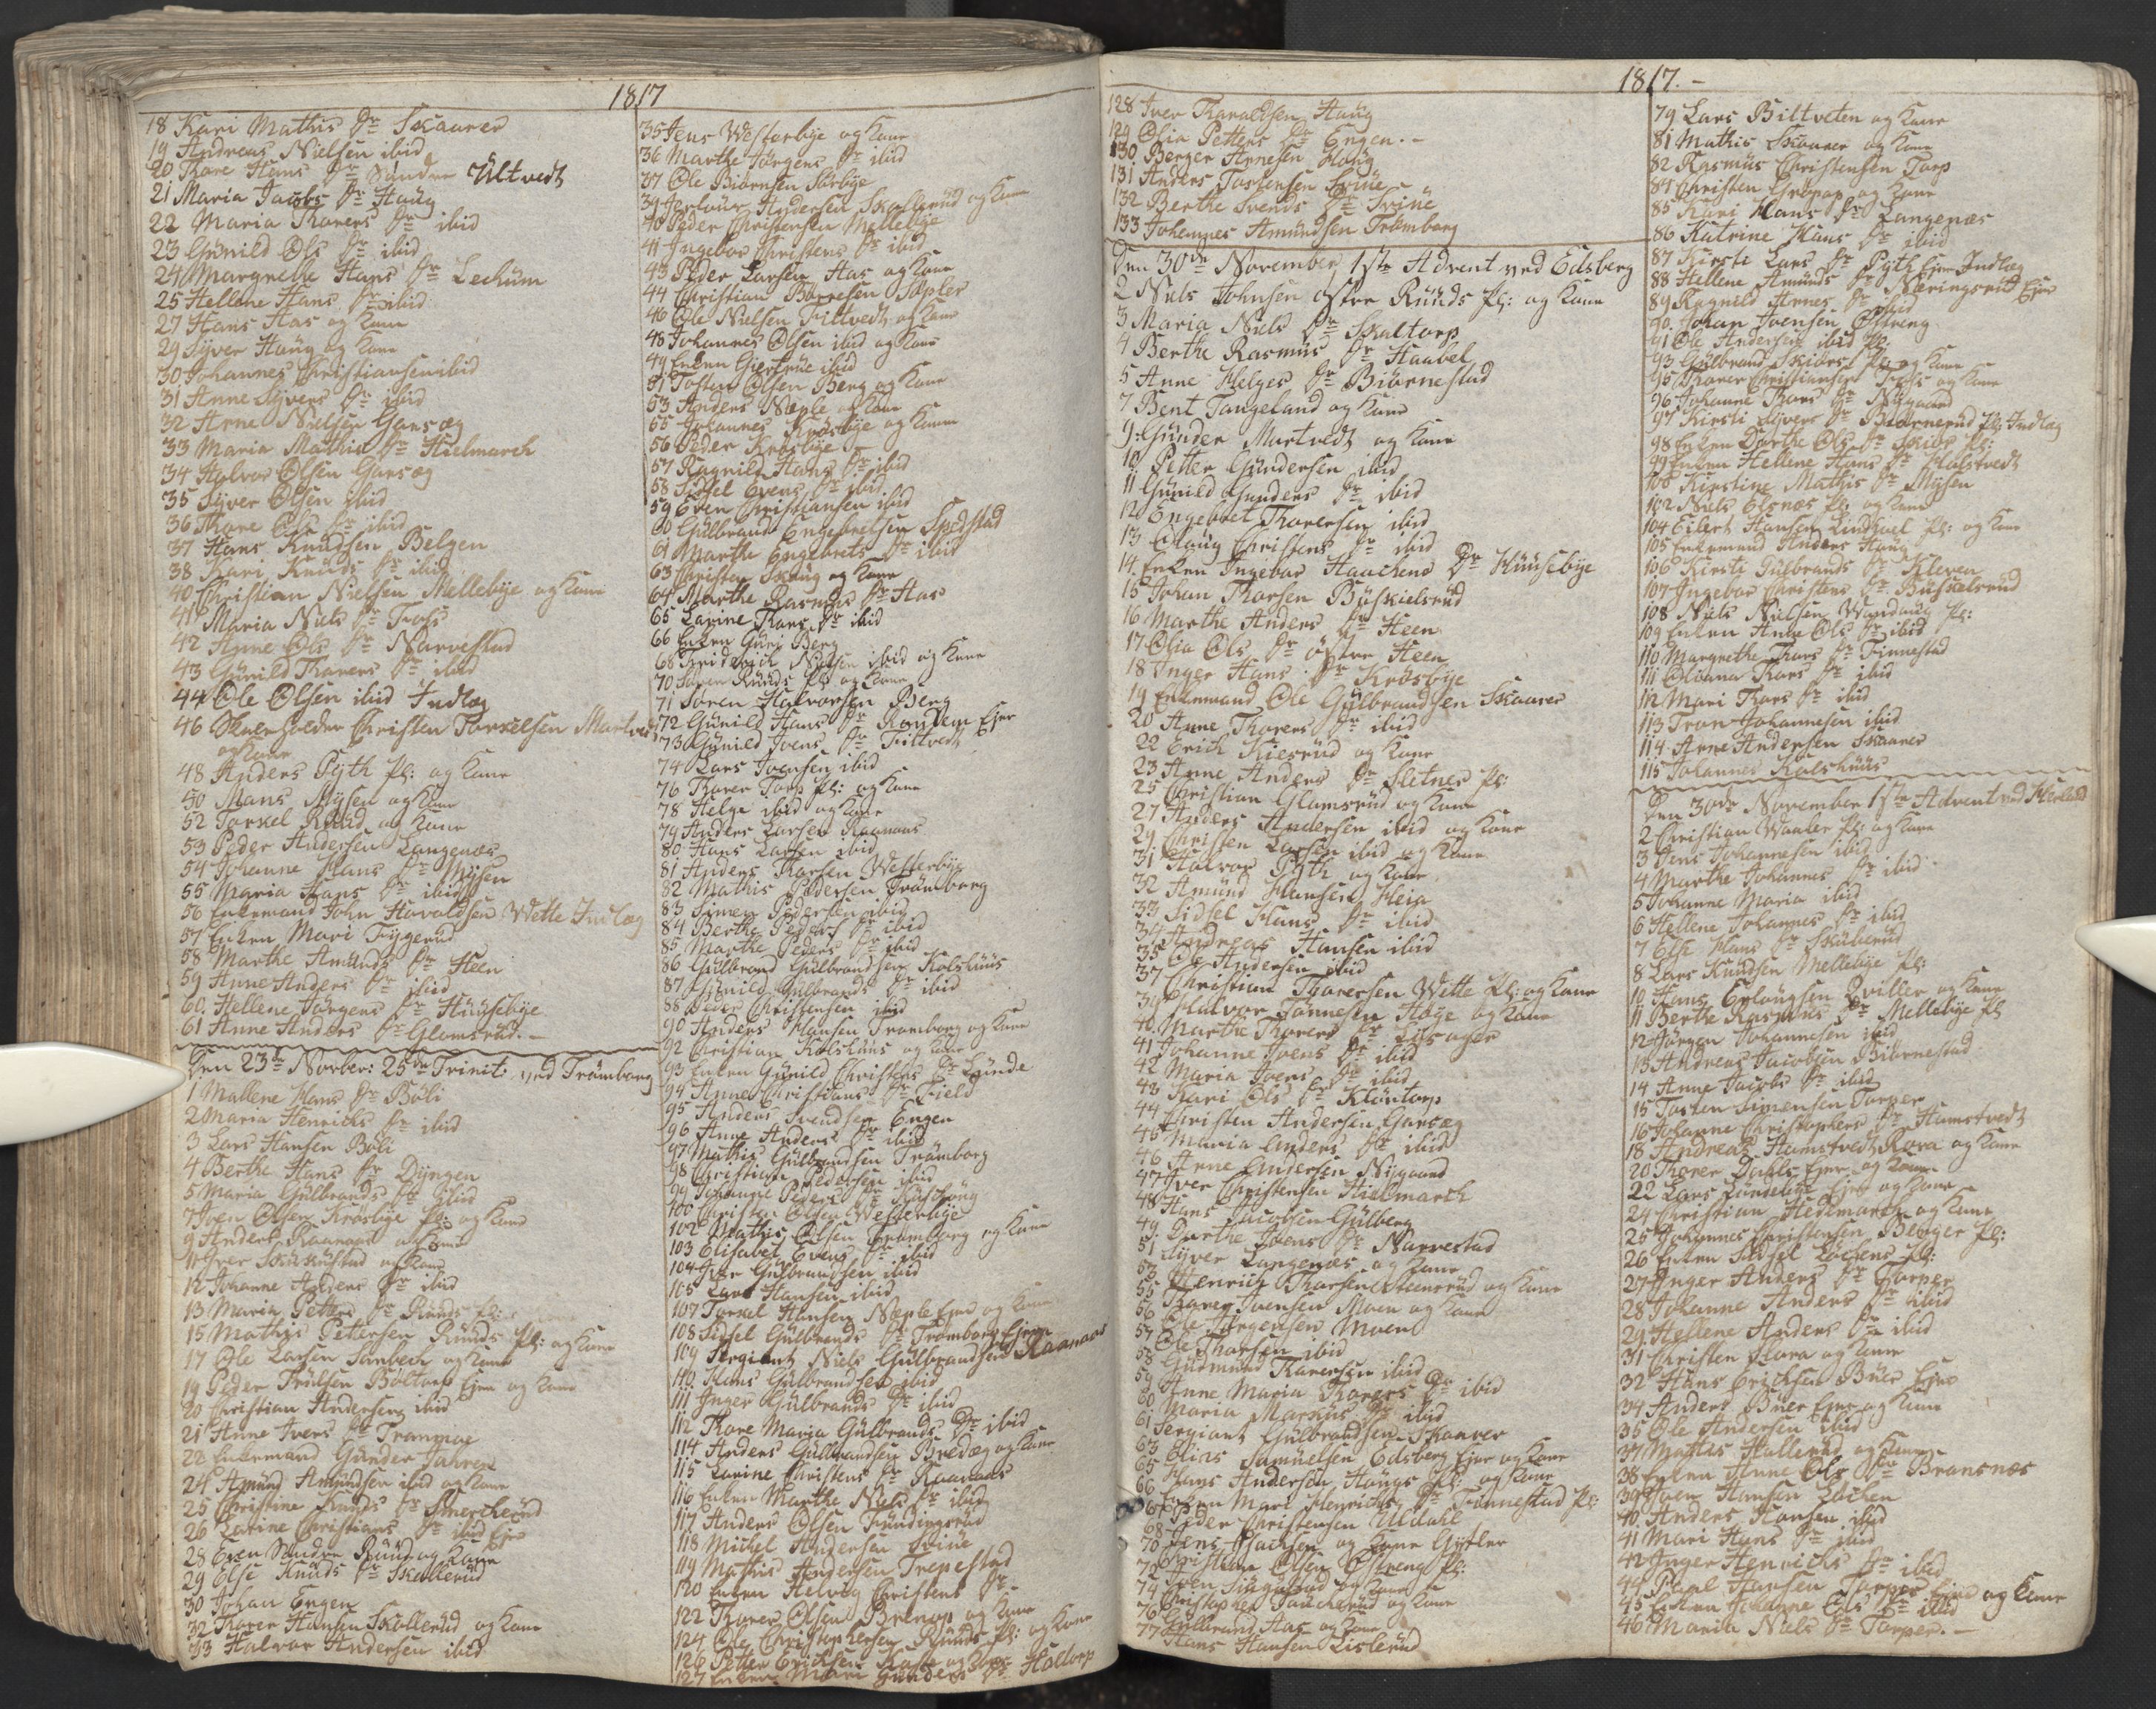 1817
18 Kari Mathis Dr Skaarer
19 Andreas Nielsen ibid
20 Thore Hans Dr Söndre Ültvedt
21 Maria Jacobs Dr Haug
22 Maria Thorers Dr ibid
23 Günild Ols Dr ibid
24 Margrethe Hans Dr Lechum
25 Hellene Hans Dr ibid
27 Hans Aas og Kone
29 Syver Haug og Kone
30 Johannes Christiansen ibid
31 Anne Syvers Dr ibid
32 Arne Nielsen Garsæg
33 Maria Mathis Dr Hielmarch
34 Halvor Olsen Garsæg
35 Syver Olsen ibid
36 Thore Ols Dr ibid
37 Hans Knudsen Belgen
38 Kari Knuds Dr ibid
40 Christian Nielsen Mellebye og Kone
41 Maria Niels Dr Foss
42 Anne Ols Dr Narvestad
43 Günild Thorers Dr ibid
44 Ole Olsen ibid Indlæg
46 Christen Torkelsen Martvedt
og Kone
48 Anders Pyth Pl: og Kone
50 Mons Mysen og Kone
52 Torkel Ruud og Kone
53 Peder Andersen Langenæs
54 Johanne Hans Dr Mysen
55 Maria Hans Dr ibid
56 Enkemand John Havoldsen Wette Indlæg
57 Enken Mari Frygerud
58 Marthe Amunds Dr Heen
59 Anne Anders Dr ibid
60. Hellene Jörgens Dr Huusebye
61 Anne Anders Dr Glomsrud. -
Den 23de Novber: 25de Trinit: ved Trömborg
1 Mallene Hans Dr Böli
2 Maria Henrichs Dr ibid
3 Lars Hansen Böli
4 Berthe Hans Dr Dyngen
5 Maria Gülbrands Dr ibid
7 Iven Olsen Krosbye Pl: og Kone
9 Anders Raanaas og Kone
11 Iver og Kone
12 Johanne Anders Dr ibid
13 Maria Petters Dr Ruuds Pl:
15 Mathis Pettersen Ruuds Pl: og Kone
17 Ole Larsen og Kone
19 Peder Trulsen Böltorp Ejer og Kone
20 Christian Andersen ibid
21 Anne Ivers Dr
22 Enkemand Gunder
24 Amund Amundsen ibid og Kone
25 Christine Knuds Dr
26 Karine Christians Dr ibid Ejer
28 Even Søndre Ruud og Kone
29 Else Knuds Dr Skallerud
30 Johan Engen
32 Thorer Hansen Skollerud og Kone
33 Halvor Andersen ibid
35 Jens Westerbye og Kone
36 Marthe Jörgens Dr ibid
37 Ole Biörnsen Sörbye
39 Andersen Skallerud og Kone
40 Peder Christensen Mellebye
41 Ingebor Christens Dr ibid
43 Peder Larsen Aas og Kone
44 Christian Börresen
46 Ole Nielsen Filtvedt og Kone
48 Johannes Olsen ibid og Kone
49 Enken Giertrue ibid
51 Tosten Olsen Berg og Kone
53 Anders Næple og Kone
55 Johannes Krosbye og Kone
56 Peder Krosbye
57 Ragnild Hans Dr ibid
58 Sidsel Evens Dr ibid
59 Even Christiansen ibid
60 Gülbrand Engebretsen Spydstad
61 Marthe Engebrets Dr ibid
63 Christen Skaug og Kone
64 Marthe Rasmus Dr Aas
65 Karine Thors Dr ibid
66 Enken Guri Berg
68 Fridrich Nielsen ibid og Kone
70 Ruuds Pl: og Kone
71 Soren Halvorsen Berg
72 Günild Hans Dr Ejer
73 Günild Ivens Dr Filtvedt
74 Lars Ivensen ibid
76 Thorer Torp Pl: og Kone
78 Helge ibid og Kone
79 Anders Larsen Raanaas
80 Hans Larsen ibid
81 Anders Thorsen Westerbye
82 Mathis Pedersen Trömborg
83 Simen Pedersen ibid
84 Berthe Peders Dr ibid
85 Marthe Peders Dr ibid
86 Gülbrand Gülbrandsen Kolshuus
87 Günild Gülbrands Dr ibid
88 Peder Christensen ibid
90 Anders Hansen Tromborg og Kone
92 Christian Kolshuus og Kone
93 Enken Günild Christens Dr Lunde
94 Anne Christians Dr Field
95 Anders Svendsen Engen
96 Anne Anders Dr ibid
97 Mathis Gülbrandsen Trömborg
98 Christian Pedersen ibid
99 Johanne Peders Dr
100 Christen Olsen Westerbye
102 Mathis Olsen Trømborg og Kone
103 Elisabet Evens Dr ibid
104 Iver Gülbrandsen ibid
105 Lars Hansen ibid
107 Torkel Hansen Næple Ejer og Kone
108 Sidsel Gülbrands Dr Tromborg Ejer
109 Sergiant Niels Gülbrandsen Raanaas
110 Hans Gülbrandsen ibid
111 Inger Gülbrands Dr ibid
112 Thore Maria Gülbrands Dr ibid
114 Anders Gülbrandsen Bredæg og Kone
115 Karine Christens Dr Raanaas
116 Enken Marthe Niels Dr ibid
117 Anders Olsen Fündingsrud
118 Michel Andersen
119 Mathis Andersen Trepestad
120 Enken Helvig Christens Dr
122 Thorer Olsen og Kone
124 Ole Christophersen Ruuds Pl: og Kone
126 Petter Erichsen og Kone
127 Enken Mari Gunders Dr Holtorp
1817. -
128 Iver Haraldsen Haug
129 Olia Petters Dr Engen. -
130 Berger Arnesen Haug
131 Anders Tostensen
132 Berthe Svends Dr
133 Johannes Amundsen Tromborg
Den 30de November 1ste Advent ved Edsberg
2 Niels Johnsen östre Ruuds Pl: og Kone
3 Maria Niels Dr Skaltorp
4 Berthe Rasmus Dr Haabel
5 Anne Helges Dr Biörnestad
7 Bent Tangeland og Kone
9: Gunder Martvedt og Kone
10 Petter Gundersen ibid
11 Günild Gunders Dr ibid
12 Engebret Thorersen ibid
13 Olaug Christens Dr ibid
14 Enken Ingebor Haachens Dr Huusebye
15 Johan Thorsen Buskielsrud
16 Marthe Anders Dr Heen
17 Olia Ols Dr östre Heen
18 Inger Hans Dr Krosbye
19 Enkemand Ole Gülbrandsen Skaarer
20 Anne Thorers Dr ibid
22 Erich Kiesrud og Kone
23 Anne Anders Dr Sletnes Pl:
25 Christian Glomsrud og Kone
27 Anders Andersen ibid og Kone
29 Christen Larsen ibid og Kone
31 Halvor Pyth og Kone
32 Amund Hansen Heia
33 Sidsel Hans Dr ibid
34 Andreas Hansen ibid
35 Ole Andersen ibid
37 Christian Thorersen Wette Pl: og Kone
39 Halvor Tønnesen Høye og Kone
40 Marthe Thorers Dr
41 Johanne Ivens Dr ibid
42 Maria Ivens Dr ibid
43 Kari Ols Dr
44 Christen Andersen Garsæg
45 Maria Anders Dr ibid
46 Arne Andersen Nygaard
47 Iver Christensen Hielmarch
48 Hans Jacobsen Gulberg
49: Dorthe Ivens Dr Narvestad
51 Syver Langenæs og Kone
53 Henrich Thorsen Steensrud og Kone
55 Thorer Ivensen Moen og Kone
56 Ole Jörgensen Moen
57 Ole Thorsen ibid
58 Gudmund Thorersen ibid
59 Anne Maria Thorers Dr ibid
60 Maria Markus Dr ibid
61 Sergiant Gülbrandsen Skaarer
63 Elias Samuelsen Edsberg Ejer og Kone
65 Hans Andersen Haugs Pl: og Kone
66 Enken Mari Henrichs Dr Finnestad Pl:
67 Peder Christensen Ulidahl
68 Jens og Kone
70 Christian Olsen Ostreng Pl:
72 Iven og Kone
74 Christopher og Kone
76 Gülbrand Aas og Kone
77 Hans Hansen Lislerud
79 Lars Biltveten og Kone
81 Mathis Skaarer og Kone
82 Rasmus Christensen Torp
84 Christen Gropop og Kone
85 Kari Hans Dr Langenæs
86 Katrine Hans Dr ibid
87 Kirste Lars Dr Pyth Ejer Indlæg
88 Hellene Amunds Dr Næringsrud Ejer
89 Ragnild Arnes Dr ibid
90. Johan Ivensen Ostreng
91 Ole Andersen ibid Pl:
93 Gülbrand Skiørs Pl: og Kone
95 Thorer Christiansen Foss og Kone
96 Johanne Thors Dr Nygaard
97 Kirsti Syvers Dr Biörnerud Pl: Indlæg
98 Enken Dorthe Ols Dr Skiør Pl:
99 Enken Hellene Hans Dr Holstvedt
100 Kirstine Mathis Dr Mysen
102 Niels Elsnæs Pl: og Kone
104 Eilert Hansen Lindhoel Pl: og Kone
105 Enkemand Anders Haug
106 Kirsti Gulbrands Dr Kleven
107 Ingebor Christens Dr Buskielsrud
108 Niels Nielsen Pl:
109 Enken Anne Ols Dr ibid
110 Margrethe Thors Dr Finnestad
111 Oleana Thors Dr ibid
112 Mari Thors Dr ibid
113 Tron Johannesen ibid
114 Arne Andersen Skaarer
115 Johannes Kolshuus
Den 30de November 1ste Advent ved Hærland
2 Christian Waaler Pl: og Kone
3 Jens Johannesen ibid
4 Marthe Johannes Dr ibid
5 Johanne Maria ibid
6 Hellene Johannes Dr ibid
7 Else Hans Dr Skuberud
8 Lars Knudsen Mellebye Pl:
10 Hans Erlaugsen Qviller og Kone
11 Berthe Rasmus Dr Mellebye Pl
12 Jörgen Johannesen ibid
13 Andreas Jacobsen Biörnestad
14 Anne Jacobs Dr ibid
15 Tosten Simensen Torper
16 Johanne Christophers Dr Humstvedt
18 Andreas Humstvedt Rova og Kone
20 Thorer Dahls Ejer og Kone
22 Lars Lundebye Ejer og Kone
24 Christian Hedemarch og Kone
25 Johannes Christensen Berger Pl:
26 Enken Sidsel Lochens Pl:
27 Inger Anders Dr Torper
28 Johanne Anders Dr ibid
29 Hellene Anders Dr ibid
31 Christen Flora og Kone
32 Hans Erichsen Buer Ejer
34 Anders Buer Ejer og Kone
35 Ole Andersen ibid
37 Mathis Hallerud og Kone
38 Enken Anne Ols Dr Bransnæs
39 Iver Hansen Lochen
40 Anders Hansen ibid
41 Mari Hans Dr ibid
42 Inger Henrichs Dr ibid
44 Poul Hansen Torper Ejer og Kone
45 Enken Johanne Ols Dr ibid
46 Maria Niels Dr Torper. -